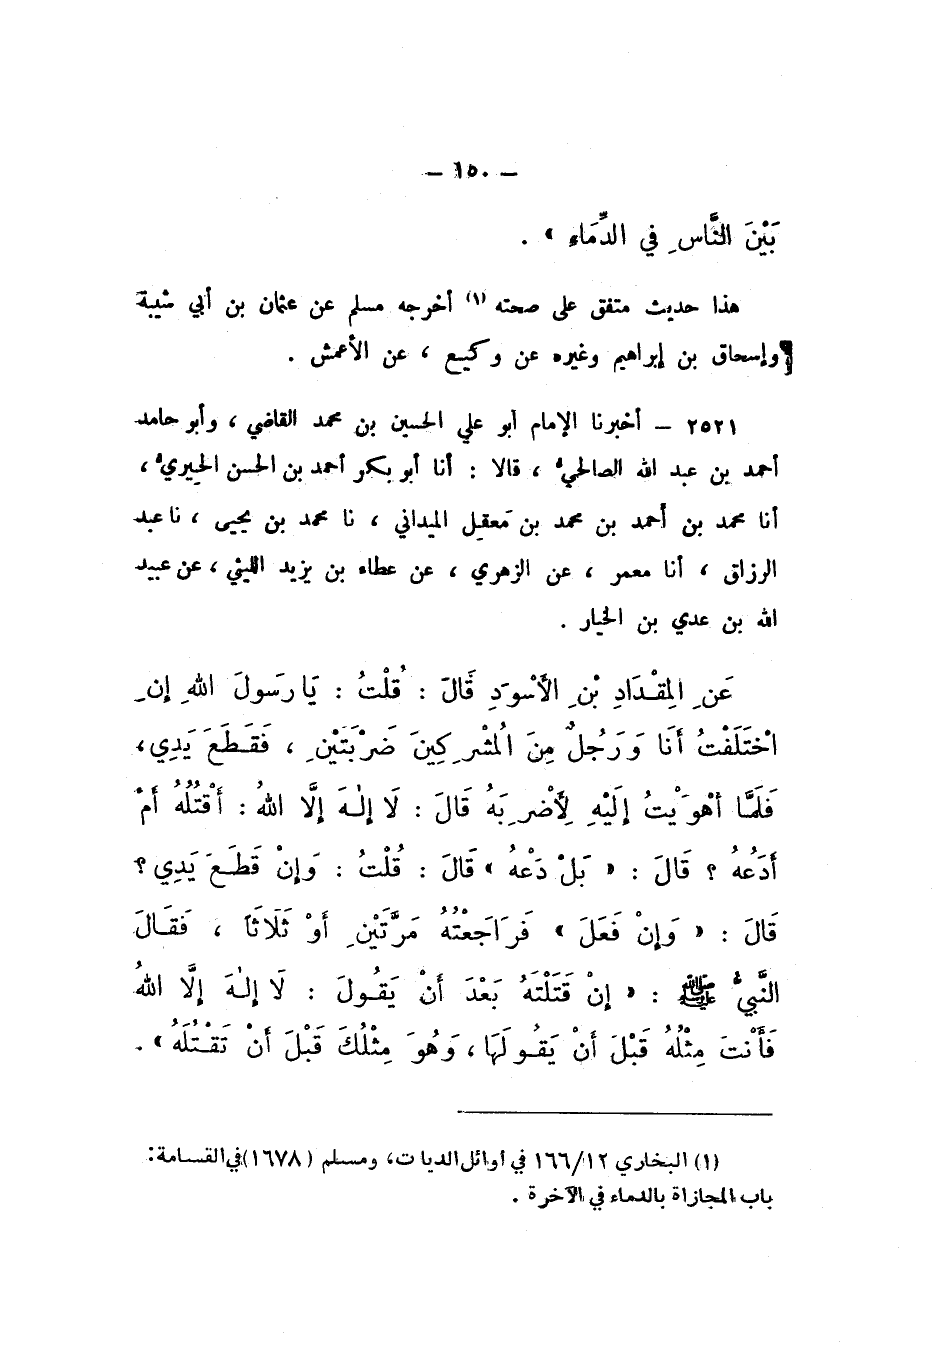 — ١٥٠ —
بَيْنَ النَّاسِ فِي الدِّمَاءِ » .
هذا حديث متفق على صحته (١) أخرجه مسلم عن عثمان بن أبي شيبة
وإسحاق بن إبراهيم وغيره عن وكيع ، عن الأعمش .
٢٥٢١ — أخبرنا الإمام أبو علي الحسين بن محمد القاضي ، وأبو حامد
أحمد بن عبد الله الصالحيُّ ، قالا : أنا أبو بكر أحمد بن الحسن الحِيريُّ ،
أنا محمد بن أحمد بن محمد بن مَعقِل الميداني ، نا محمد بن يحيى ، نا عبد
الرزاق ، أنا معمر ، عن الزهري ، عن عطاء بن يزيد الليثي ، عن عبيد
الله بن عدي بن الخيار .
عَنِ المِقْدَادِ بْنِ الأَسْوَدِ قَالَ : قُلْتُ : يَا رَسولَ اللهِ إِنِ
اخْتَلَفْتُ أَنَا وَرَجُلٌ مِنَ المُشْرِكِينَ ضَرْبَتَيْنِ ، فَقَطَعَ يَدِي،
فَلَمَّا أَهْوَيْتُ إِلَيْهِ لِأَضْرِبَهُ قَالَ : لَا إِلٰهَ إِلَّا اللهُ : أَقْتُلُهُ أَمْ
أَدَعُهُ ؟ قَالَ : « بَلْ دَعْهُ » قَالَ : قُلْتُ : وَإِنْ قَطَعَ يَدِي ؟
قَالَ : « وَإِنْ فَعَلَ » فَرَاجَعْتُهُ مَرَّتَيْنِ أَوْ ثَلَاثَاً ، فَقَالَ
النَّبِيُّ ﷺ : « إِنْ قَتَلْتَهُ بَعْدَ أَنْ يَقُولَ : لَا إِلٰهَ إِلَّا اللهُ
فَأَنْتَ مِثْلُهُ قَبْلَ أَنْ يَقُولَهَا ، وَهُوَ مِثْلُكَ قَبْلَ أَنْ تَقْتُلَهُ » .
(١) البخاري ١٦٦/١٢ في أوائل الديات، ومسلم (١٦٧٨) في القسامة:
باب المجازاة بالدماء في الآخرة .